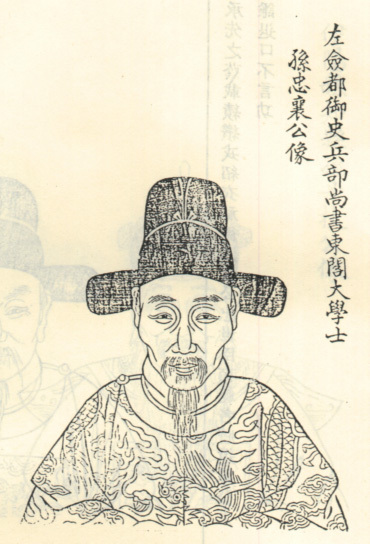 左僉都御史兵部尚書東閣大學士
孫忠襄公像